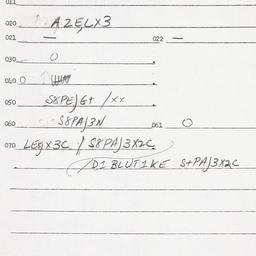 011
020 AZELX3
021 — 022 —
030 O
040 O
050 S8PEJG+ /XX
060 S8PAJ3N 061 O
070 LEgX3C / S8PAJ3X2C
/D1BLUT1KE S+PAJ3X2C